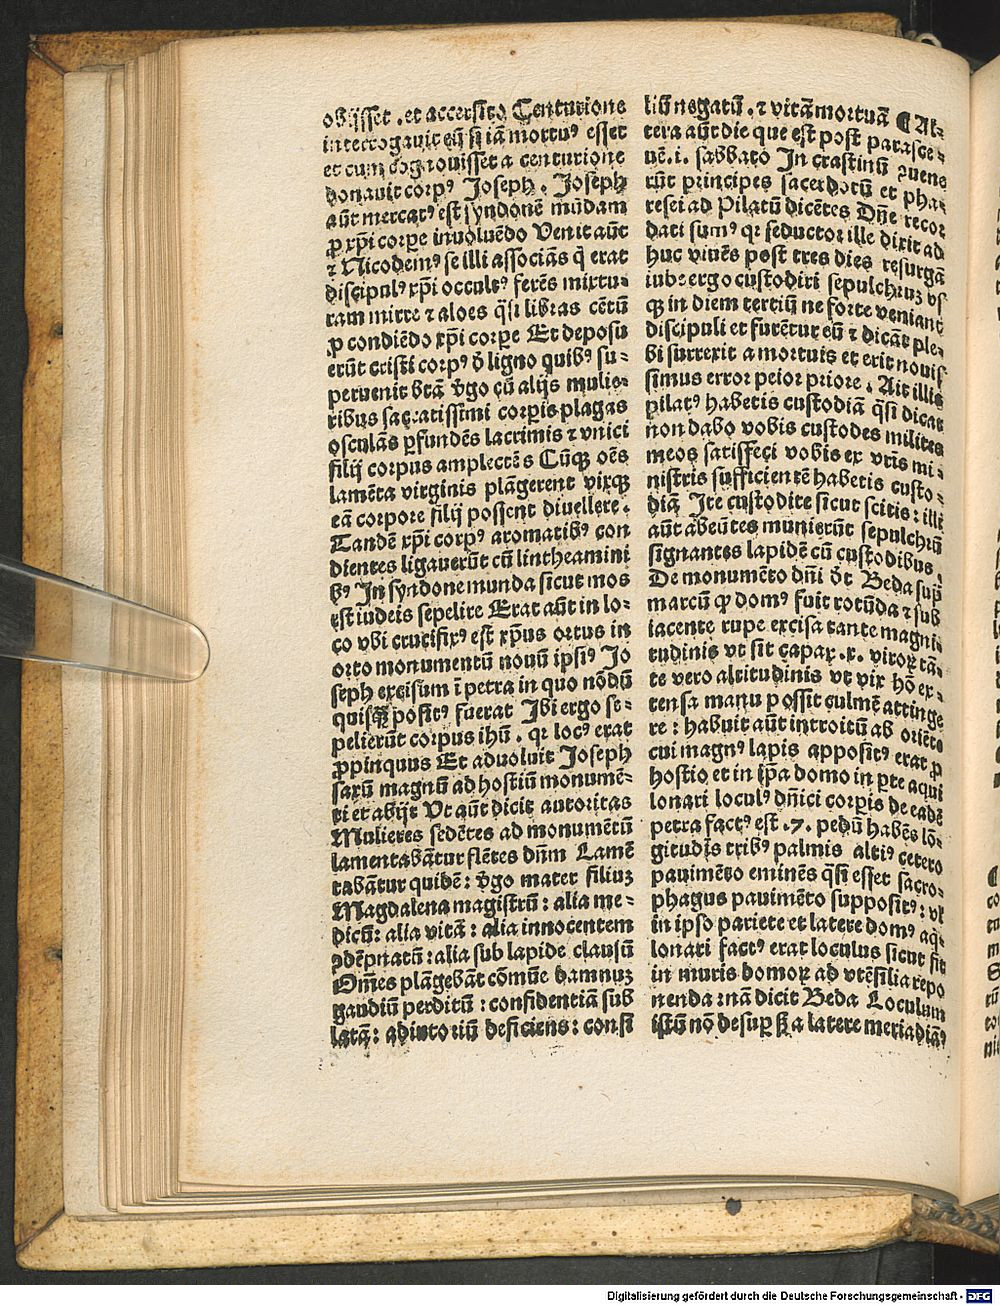 obijsset . et accersito Centurione
interrogauit eū si iā mortuꝰ esset
et cum cognouisset a centurione
donauit corpꝰ Joseph . Joseph
aūt mercatꝰ est syndonē mūdam
ꝓ xp̄i corpe inuoluēdo Venit aūt
⁊ Nicodemꝰ se illi associās q̄ erat
discipulꝰ xp̄i occultꝰ ferēs mixtu⸗
ram mirre ⁊ aloes q̄si libras cētū
ꝓ condiēdo xp̄i corpe Et deposu
erūt cristi corpꝰ d̄ ligno quibꝰ su⸗
peruenit btā v̄go cū alijs mulie⸗
ribus sacratissimi corpis plagas
osculās ꝑfundēs lacrimis ⁊ vnici
filij corpus amplectēs Cūqꝫ oēs
lamēta virginis plāgerent vixqꝫ
eā corpore filij possent diuellere .
Tandē xp̄i corpꝰ aromatibꝰ con
dientes ligauerūt cū lintheamini
bꝰ In syndone munda sicut mos
est iudeis sepelire Erat aūt in lo⸗
co vbi crucifixꝰ est xp̄us ortus in
orto monumentū nouū ipsiꝰ Jo
seph excisum ī petra in quo nōdū
quisqꝫ positꝰ fuerat Ibi ergo se⸗
pelierūt corpus ihū . qr locꝰ erat
ꝓpinquus Et aduoluit Joseph
saxū magnū ad hostiū monumē⸗
ti et abijt Vt aūt dicit autoritas
Mulieres sedētes ad monumētū
lamentabātur flētes dn̄m Lamē
tabātur quidē : v̄go mater filiuꝫ
Magdalena magistrū : alia me⸗
dicū : alia vitā : alia innocentem
ꝯdēpnatū : alia sub lapide clausū
Om̄es plāgebāt cōmūe damnuꝫ
gaudiū perditū : confidentiā sub
latā : adiutoriū deficiens : consi
liū negatū . ⁊ vitā mortuā ¶ Al⸗
tera aūt die que est post parasce⸗
uē .i. sabbato In crastinū ꝯuene
rūt principes sacerdotū et pha⸗
resei ad Pilatū dicētes Dn̄e recor
dati sumꝰ qr seductor ille dixit ad
huc viuēs post tres dies resurgā
iube ergo custodiri sepulchruꝫ vs
qꝫ in diem tertiū ne forte veniant
discipuli et furētur eū ⁊ dicāt ple⸗
bi surrexit a mortuis et erit nouis
simus error peior priore . Ait illis
pilatꝰ habetis custodiā q̄si dicat
non dabo vobis custodes milites
meos satisfeci vobis ex vr̄is mi⸗
nistris sufficientē habetis custo⸗
diā Ite custodite sicut scitis : illi
aūt abeūtes munierūt sepulchrū
signantes lapidē cū custodibus .
De monumēto dn̄i dt̄ Beda suꝑ
marcū qꝫ domꝰ fuit rotūda ⁊ sub
iacente rupe excisa tante magni
tudinis vt sit capax .x. viroꝝ tā⸗
te vero altitudinis vt vix hō ex⸗
tensa manu possit culmē attinge
re : habuit aūt introitū ab oriēte
cui magnꝰ lapis appositꝰ erat ꝓ
hostio et in ip̄a domo in ꝑte aqui
lonari loculꝰ dn̄ici corpis de eadē
petra factꝰ est .7. pedū habēs lō⸗
gitudīs tribꝰ palmis altiꝰ cetero
pauimēto eminēs q̄si esset sacro⸗
phagus pauimēto suppositꝰ : vl̄
in ipso pariete et latere domꝰ aq̄⸗
lonari factꝰ erat loculus sicut fit
in muris domoꝝ ad vtēsilia repo
nenda : nā dicit Beda Loculum
istū nō desuꝑ sꝫ a latere meridiāꝰ
Digitalisierung gefördert durch die Deutsche Forschungsgemeinschaft - DFG